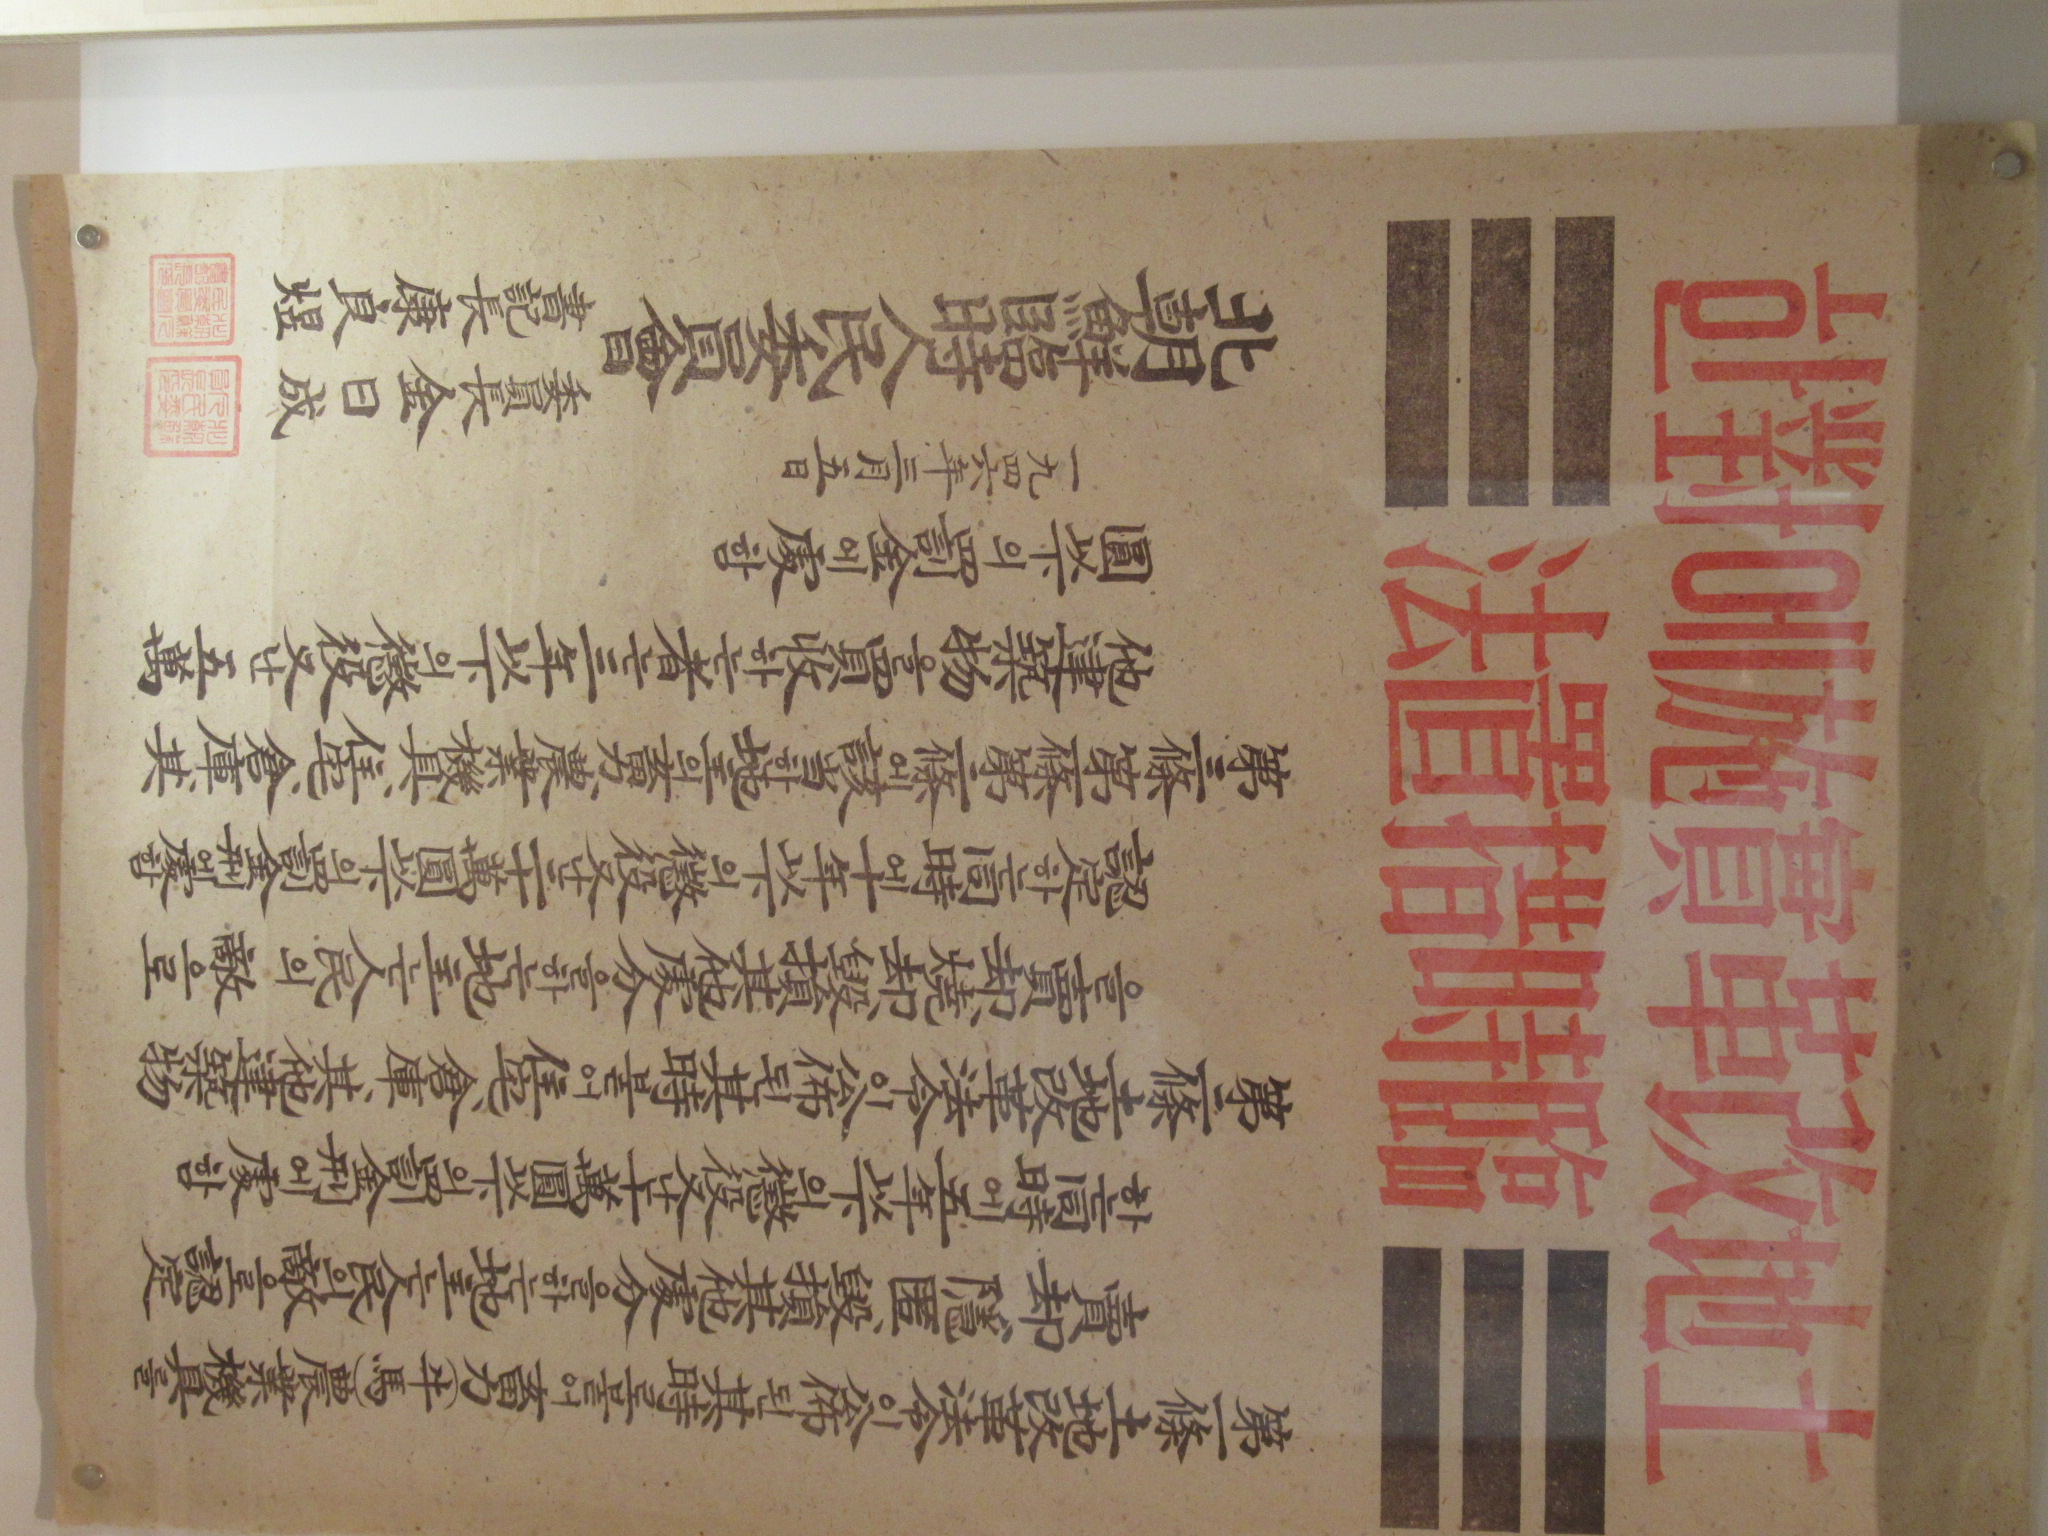 土地改革實施에對한
臨時措置法
第一條 土地改革法令이公佈된其時로붙어畜力(牛馬)農業機具를
賣却、隱匿、毀損其他處分을하는地主는人民의敵으로認定
하는同時에五年以下의懲役又는十萬圓以下의罰金刑에處함
第二條 土地改革法令이公佈된其時로붙어住宅、倉庫、其他建築物
을賣却、燒却、毀損其他處分을하는地主는人民의敵으로
認定하는同時에十年以下의懲役又는二十萬圓以下의罰金刑에處함
第三條 第一條第二條에該當地主의畜力、農業機具、住宅、倉庫、其
他建築物을買收하는者는三年以下의懲役又는五萬
圓以下의罰金에處함
一九四六年三月五日
北朝鮮臨時人民委員會
委員長 金日成
書記長 康良煜